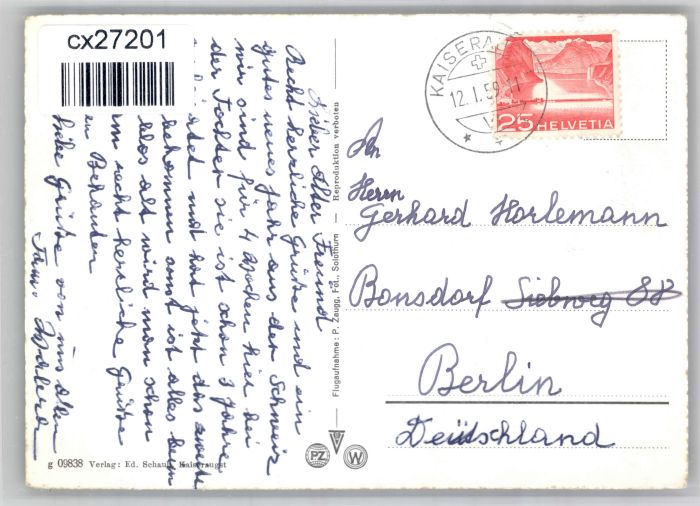 cx27201
Lieber Alter Freund
Recht herzliche Grüße und ein
gutes neues Jahr aus der Schweiz
wir sind für 4 Wochen hier bei
der Tochter sie ist schon 3 Jahre
und hat jetzt das zweite
bekommen sonst ist alles beim
alt wird man schon
im recht herzliche Grüße
an Bekannten
liebe Grüße von uns allen
Fam.
Flugaufnahme: P. Zaugg, Fot., Solothurn — Reproduktion verboten
PZ
W
g 09838 Verlag: Ed. Schaub, Kaiseraugst
12.1.59.11
25 HELVETIA
An
Herrn
Gerhard Horlemann
Bonsdorf Siebweg 88
Berlin
Deütschland